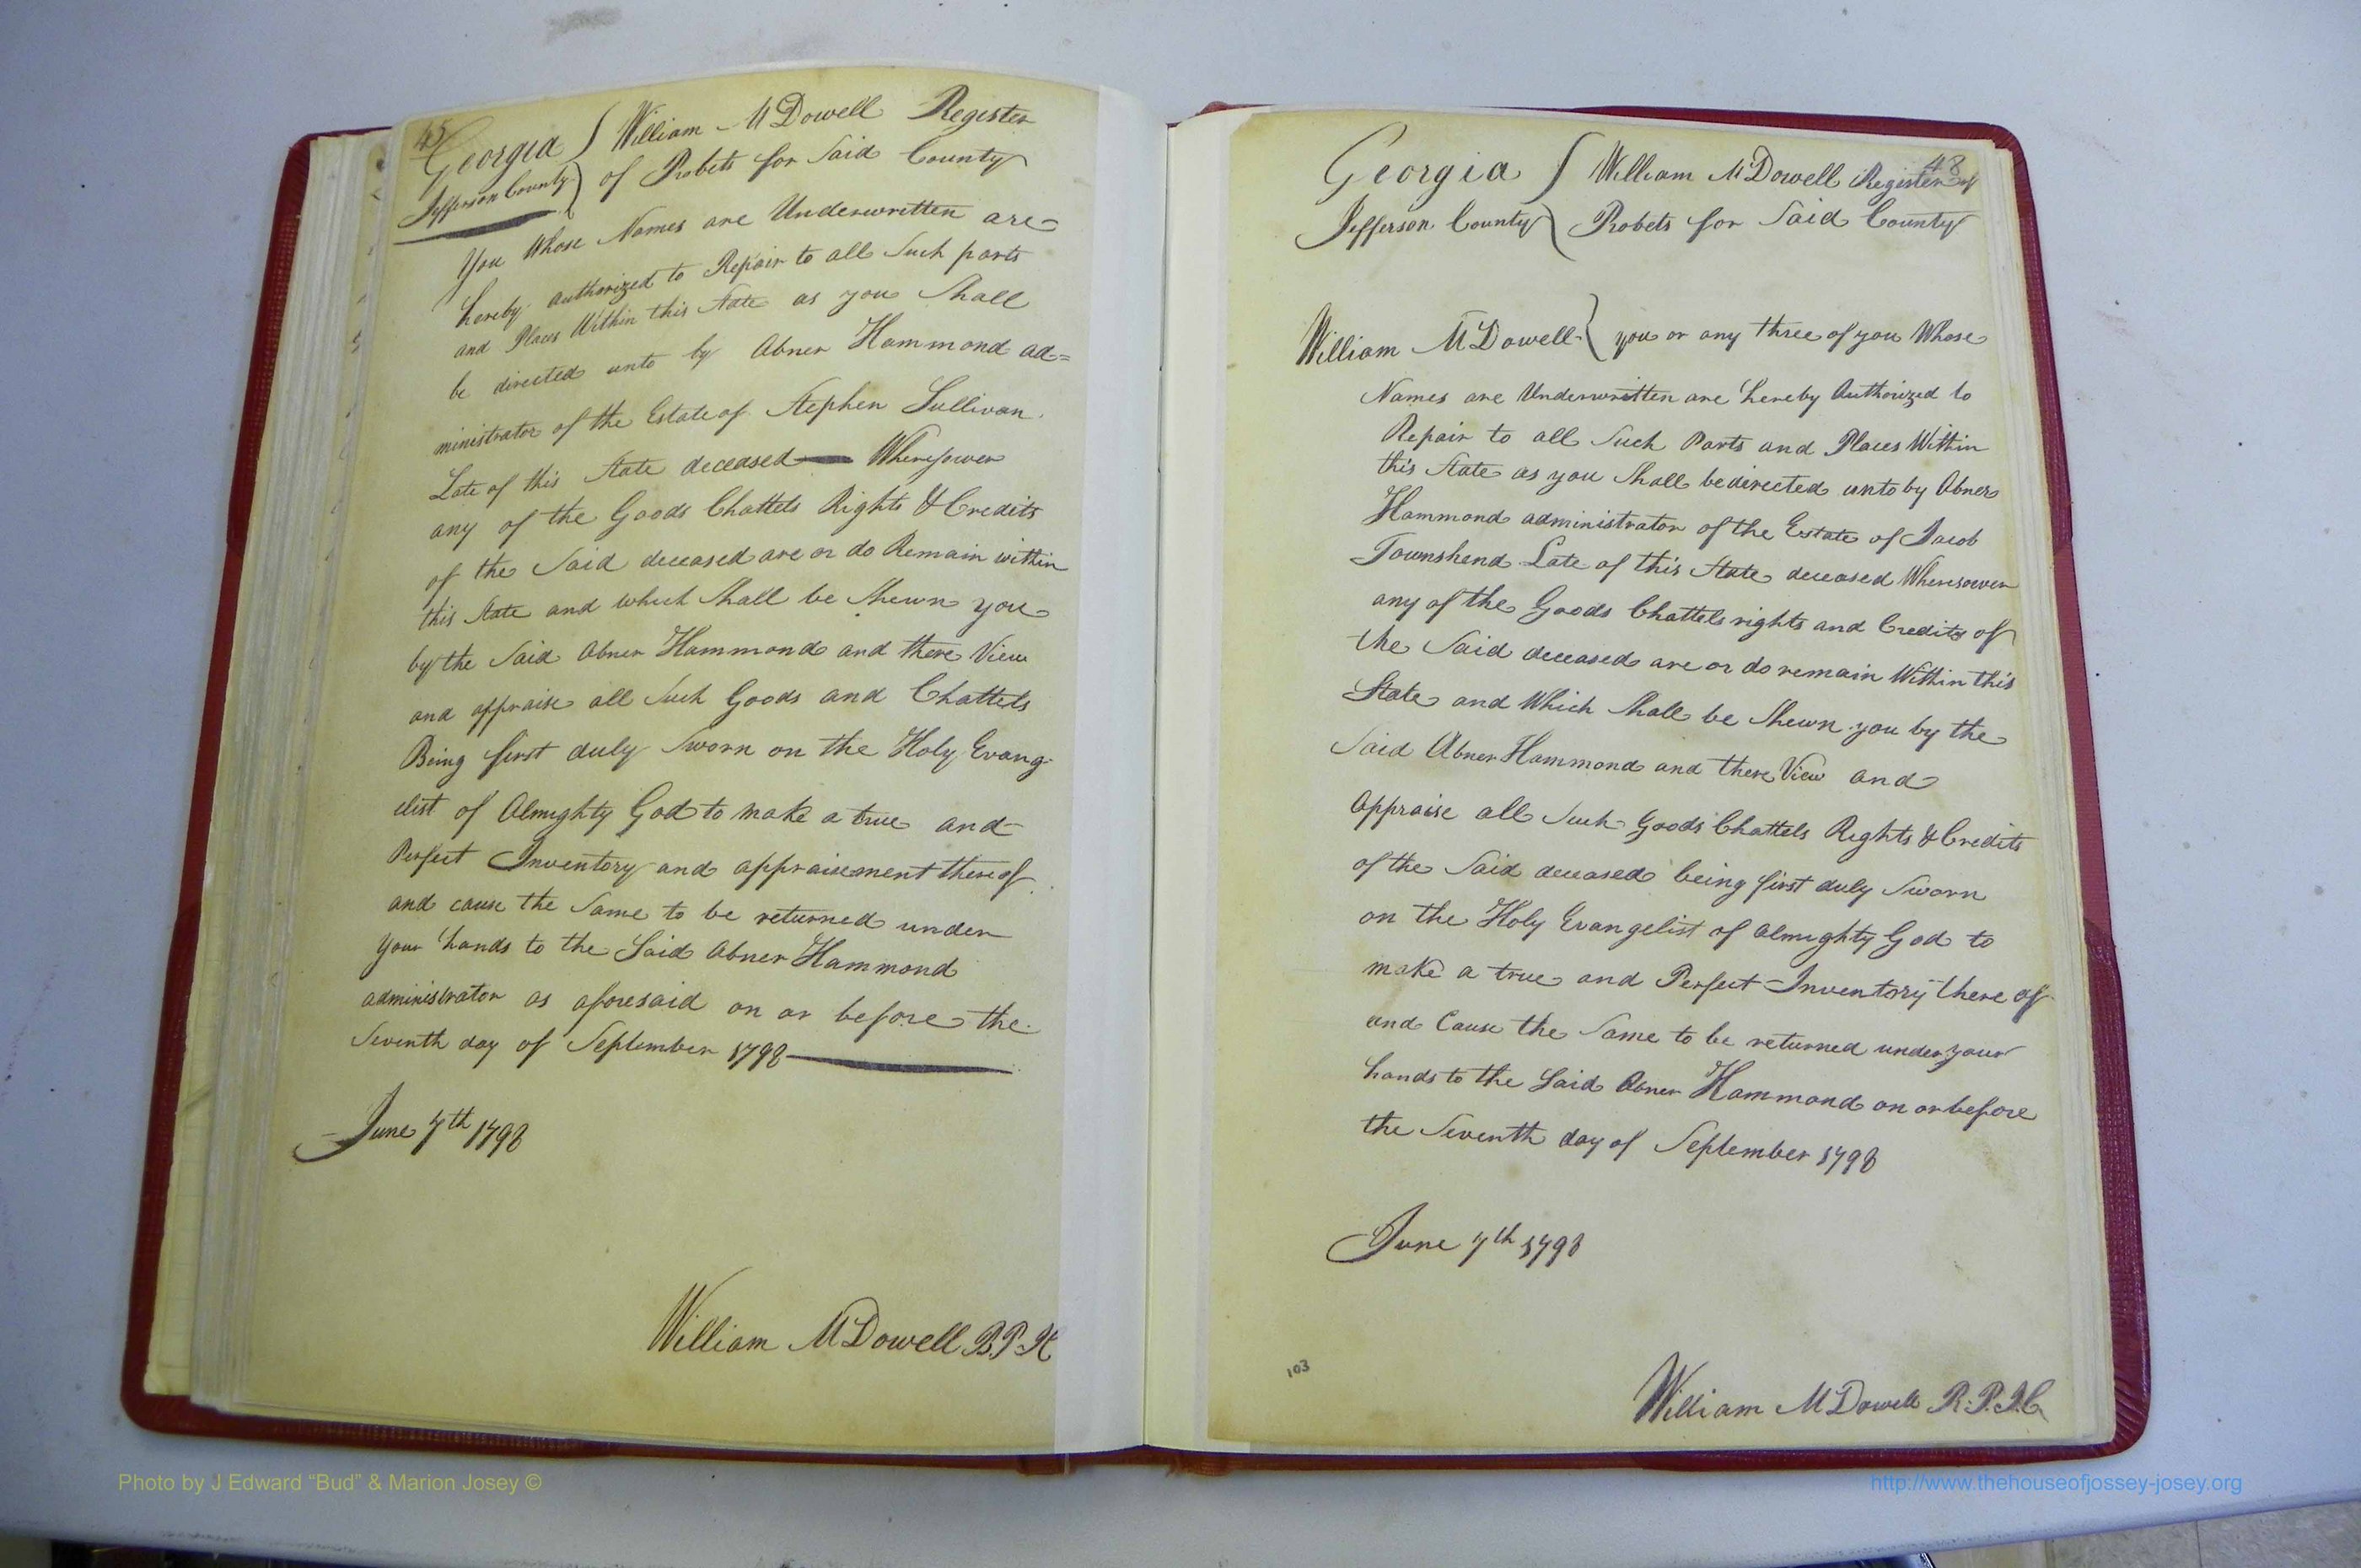 45
Georgia } William McDowell Register
Jefferson County } of Probets for Said County
You Whose Names are Underwritten are
hereby authorized to Repair to all Such parts
and Places Within this State as you Shall
be directed unto by Abner Hammond ad=
ministrator of the Estate of Stephen Sullivan
Late of this State deceased — Wheresower
any of the Goods Chattels Rights & Credits
of the Said deceased are or do Remain within
this State and which Shall be Shewn you
by the Said Abner Hammond and there View
and appraise all Such Goods and Chattels
Being first duly Sworn on the Holy Evang
elist of Almighty God to make a true and
Perfect Inventory and appraisement thereof
and cause the Same to be returned under
your hands to the Said Abner Hammond
administrator as aforesaid on or before the
Seventh day of September 1798
June 7th 1798
William McDowell
48
Georgia } William McDowell Register of
Jefferson County } Probets for Said County
William McDowell } you or any three of you Whose
Names are Underwritten are hereby Authorized to
Repair to all Such Parts and Places Within
this State as you Shall be directed unto by Abner
Hammond administrator of the Estate of Jacob
Townshend Late of this State deceased Wheresoever
any of the Goods Chattels rights and Credits of
the Said deceased are or do remain Within this
State and Which Shall be Shewn you by the
Said Abner Hammond and there View and
Appraise all Such Goods Chattels Rights & Credits
of the Said deceased being first duly Sworn
on the Holy Evangelist of Almighty God to
make a true and Perfect Inventory there of
and Cause the Same to be returned under your
hands to the Said Abner Hammond on or before
the Seventh day of September 1798
June 7th 1798
103
William McDowell R.P.J.C
Photo by J Edward “Bud” & Marion Josey ©
http://www.thehouseofjossey-josey.org